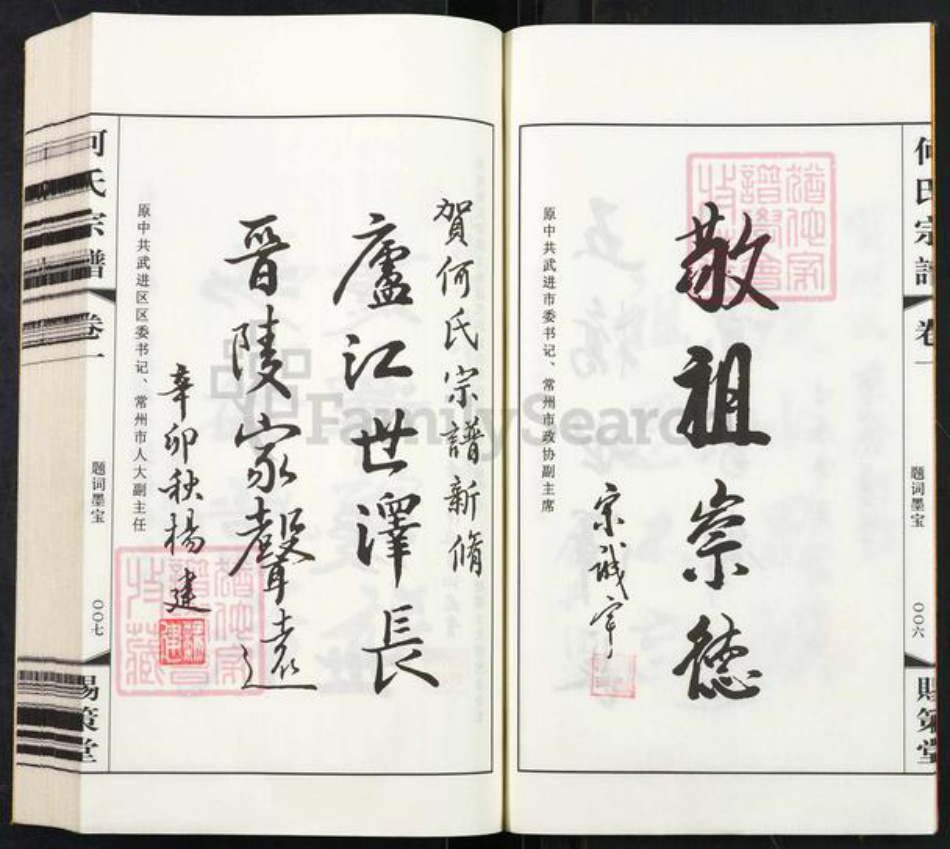 何氏宗譜
卷一
题词墨宝
〇〇六
賜策堂
敬祖崇德
宗诚宰
原中共武进市委书记、常州市政协副主席
賀何氏宗譜新脩
廬江世澤長
晉陵家聲遠
辛卯秋楊建
原中共武进区区委书记、常州市人大副主任
何氏宗譜
卷一
题词墨宝
〇〇七
賜策堂
FamilySearch